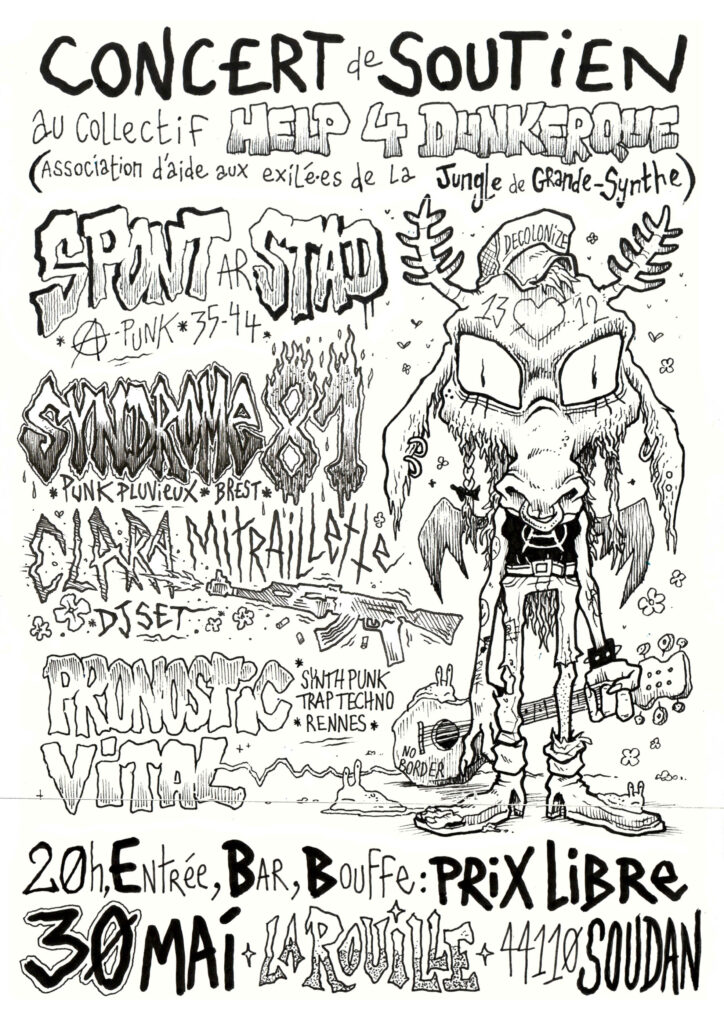 CONCERT de SOUTIEN
au collectif HELP 4 DUNKERQUE
(Association d'aide aux exilé·es de la Jungle de Grande-Synthe)
SPONT AR STAD
* A-PUNK * 35-44 *
DECOLONIZE
13 12
SYNDROME 81
* PUNK PLUVIEUX * BREST *
CLARA MITRAILLETTE
* DJ SET *
A
PRONOSTIC VITAL
* SYNTH PUNK
TRAP TECHNO
* RENNES *
NO BORDER
20h, Entrée, Bar, Bouffe : PRIX LIBRE
30 MAI + LA ROUILLE + 44110 SOUDAN